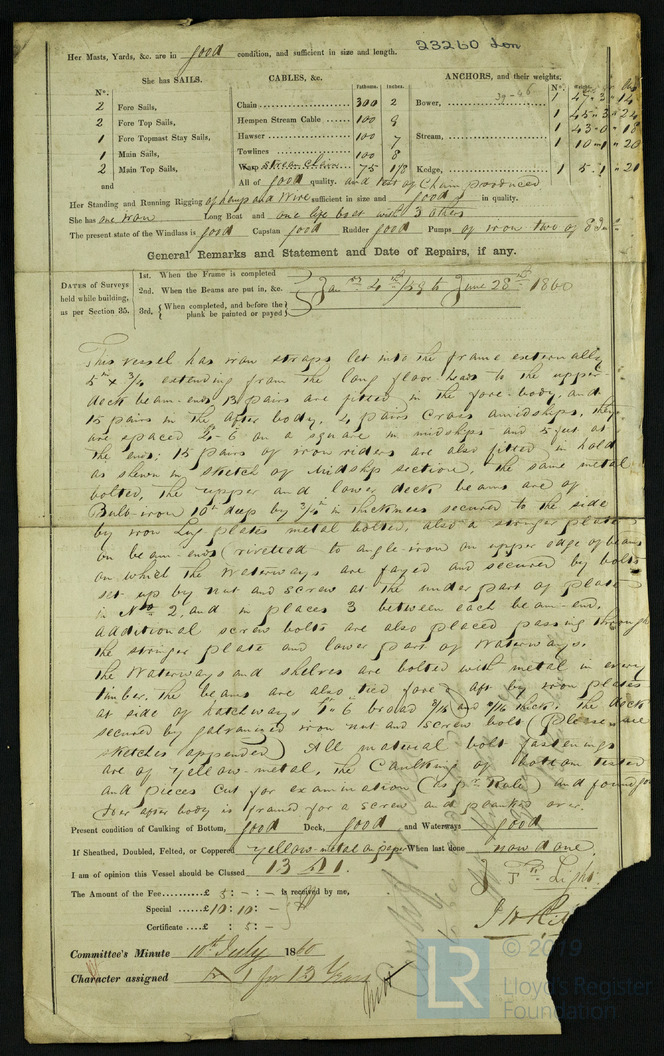 23260 Lon
Her Masts, Yards, &c. are in good condition, and sufficient in size and length.
She has SAILS. CABLES, &c. ANCHORS, and their weights.
N°. Fathoms. Inches. N°. Weight.
2 Fore Sails, Chain 300 2 Bower, 1 47 " 2 " 14
2 Fore Top Sails, Hempen Stream Cable 100 9 1 45 " 3 " 24
1 Fore Topmast Stay Sails, Hawser 100 7 Stream, 1 43 " 0 " 18
1 Main Sails, Towlines 100 8 1 10 " 1 " 20
2 Main Top Sails, Warp Stream Chain 75 1 1/8 Kedge, 1 5 " 1 " 21
and All of good quality. and test of Chain produced
Her Standing and Running Rigging of hemp and Wire sufficient in size and good in quality.
She has one Iron Long Boat and one life boat with 3 others
The present state of the Windlass is good Capstan good Rudder good Pumps of iron two of
General Remarks and Statement and Date of Repairs, if any.
DATES of Surveys held while building, as per Section 35.
1st. When the Frame is completed
2nd. When the Beams are put in, &c.
3rd. When completed, and before the plank be painted or payed
June 28th 1860
This vessel has iron straps let into the frame externally
5 in x 3/4 extending from the long floor heads to the upper
deck beam-ends 13 pairs are fitted in the fore-body, and
15 pairs in the after body, 4 pairs Cross amidships, they
are spaced 4-6 on a square in midships and 5 feet at
the ends; 15 pairs of iron riders are also fitted in hold
as shewn in sketch of Midship section, the same metal
bolted, the upper and lower deck beams are of
Bulb-iron 10 in deep by in thickness secured to the side
by iron Lug plates metal bolted, also a stringer plate
on beam-ends (rivetted to angle-iron on upper edge of beams
on which the Waterways are fayed and secured by bolts
set up by nut and screw at the under part of plate
in No 2, and in places 3 between each beam-end,
additional screw bolts are also placed passing through
the stringer plate and lower part of Waterways.
The Waterways and shelves are bolted with metal in every
timber. The beams are also tied fore & aft by iron plates
at side of hatchways 1 " 6 broad and thick. The deck
secured by galvanised iron nut and screw bolt (Please see
sketches appended) All material bolt fastenings
are of yellow-metal, The Caulking of bottom tested
and pieces cut for examination (as pr Rule) and found good
Her after body is framed for a screw and planked over.
Present condition of Caulking of Bottom, good Deck, good and Waterways good
If Sheathed, Doubled, Felted, or Coppered Yellow-metal on paper When last done now done
I am of opinion this Vessel should be Classed 13 A 1.
The Amount of the Fee £ 5 : - : - is received by me,
Special £ 10 : 10 : -
Certificate £ : 5 : -
Committee's Minute 10th July 1860
Character assigned A 1 for 13 Years
© 2019
LR
Lloyd's Register
Foundation